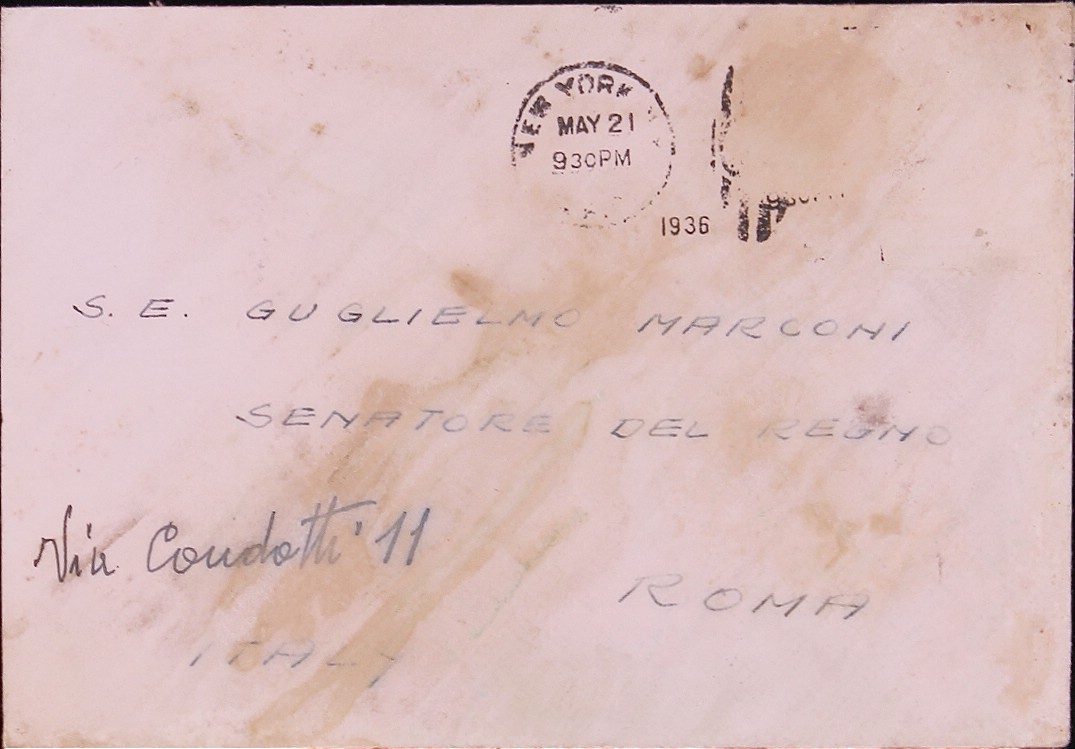 NEW YORK N.Y.
MAY 21
930PM
1936
S. E. GUGLIELMO MARCONI
SENATORE DEL REGNO
Via Condotti 11
ROMA
ITALY